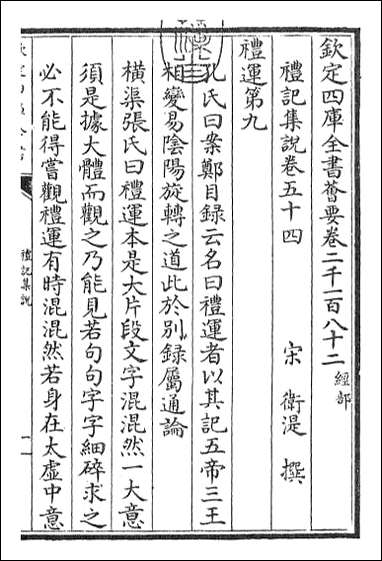 欽定四庫全書薈要卷二千一百八十二 經部
禮記集說卷五十四
宋 衛湜 撰
禮運第九
孔氏曰案鄭目録云名曰禮運者以其記五帝三王
相變易陰陽旋轉之道此於别録屬通論
橫渠張氏曰禮運本是大片段文字混混然一大意
須是據大體而觀之乃能見若句句字字細碎求之
必不能得嘗觀禮運有時混混然若身在太虚中意
禮記集說
一